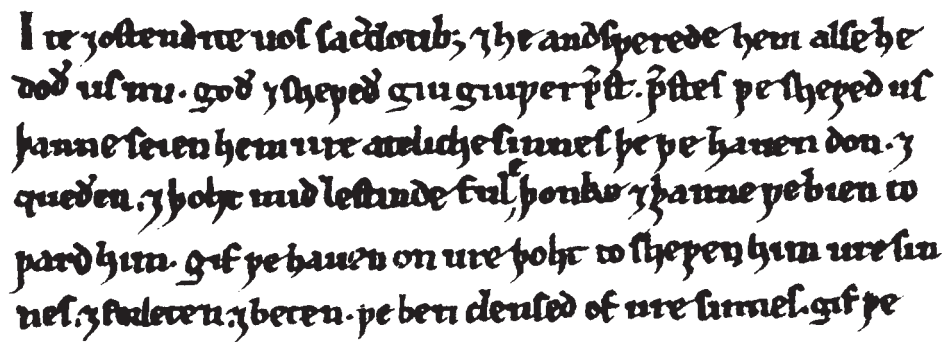 Ite ⁊ ostendite uos sac̄dotib; ⁊ he andsƿerede hem alse he
doð us nu. goð ⁊ sheƿeð giu giuƿer p̄st. p̄stes ƿe sheƿed us
þanne seien hem ure ateliche sinnes þe ƿe hauen don. ⁊
queðen. ⁊ þoht mid lestinde ful þonke ⁊ þanne ƿe bien to
ƿard him. gif ƿe hauen on ure þoht to sheƿen him ure sin
nes. ⁊ forleten. ⁊ beten. ƿe ben clensed of ure sinnes. gif ƿe